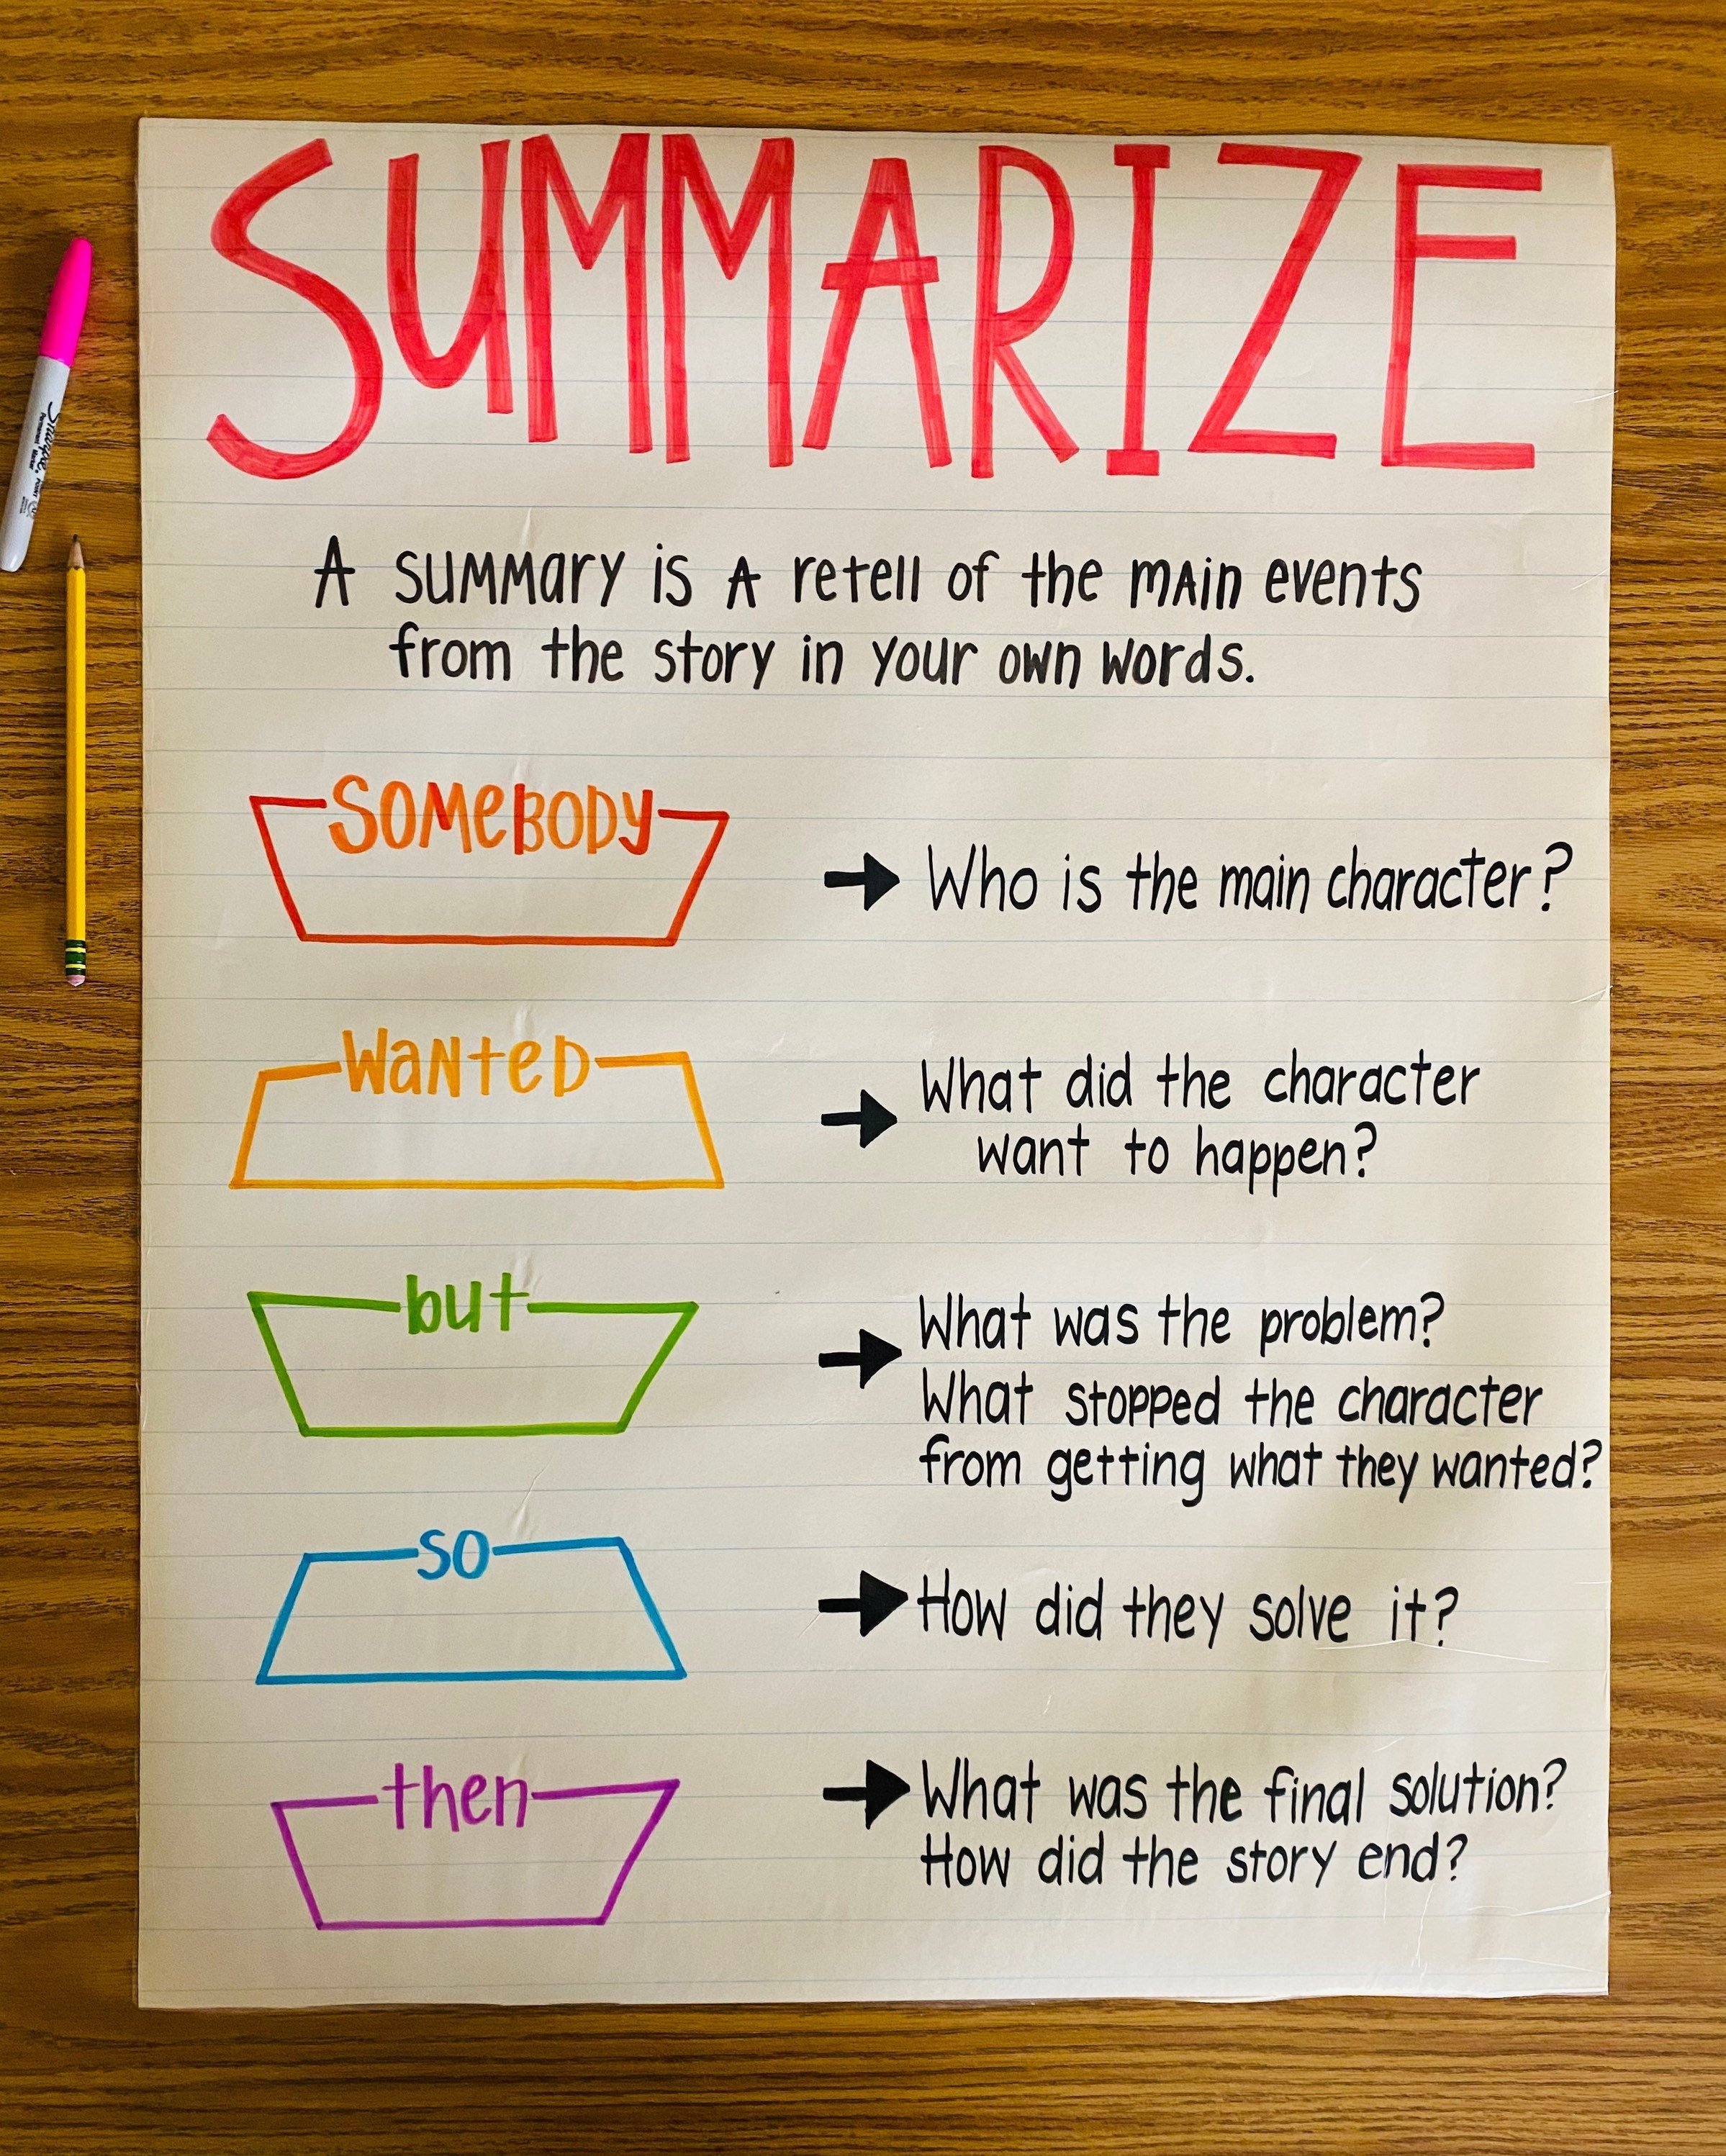 SUMMARIZE
A summary is a retell of the main events
from the story in your own words.
SOMEBODY
Who is the main character?
WANTED
What did the character
want to happen?
but
What was the problem?
What stopped the character
from getting what they wanted?
so
How did they solve it?
then
What was the final solution?
How did the story end?
Sharpie